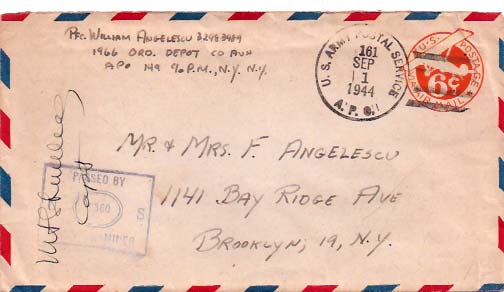 Pfc. William Angelescu 32983989
1966 Ord. Depot Co Avn
APO 149 % P.M., N.Y. N.Y.
U.S. ARMY POSTAL SERVICE
161
SEP
1
1944
A.P.O.
U.S. POSTAGE
6¢
VIA AIR MAIL
Mr. & Mrs. F. Angelescu
1141 Bay Ridge Ave
Brooklyn, 19, N.Y.
PASSED BY
S
EXAMINER
Capt